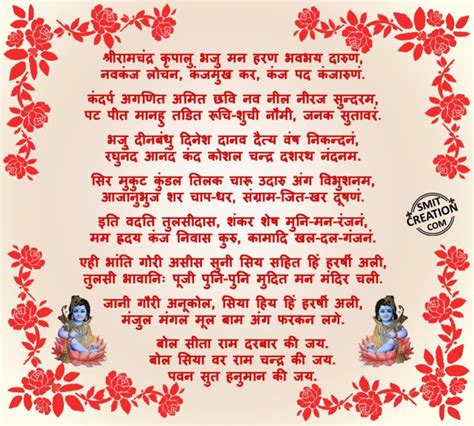 श्रीरामचंद्र कृपालु भजु मन हरण भवभय दारुणं,
नवकंज लोचन, कंजमुख कर, कंज पद कंजारुणं.
कंदर्प अगणित अमित छवि नव नील नीरज सुन्दरम,
पट पीत मानहु तडित रूचि-शुची नौमी, जनक सुतावरं.
भजु दीनबंधु दिनेश दानव दैत्य वंष निकन्दनं,
रघुनंद आनंद कंद कोशल चन्द्र दशरथ नंदनम.
सिर मुकुट कुंडल तिलक चारू उदारु अंग विभुशनम,
आजानुभुज शर चाप-धर, संग्राम-जित-खर दूषणं.
इति वदति तुलसीदास, शंकर शेष मुनि-मन-रंजनं,
मम ह्रदय कंज निवास कुरु, कामादि खल-दल-गंजनं.
एही भांति गोरी असीस सुनी सिय सहित हिं हरषीं अली,
तुलसी भावानिः पूजी पुनि-पुनि मुदित मन मंदिर चली.
जानी गौरी अनूकोल, सिया हिय हिं हरषीं अली,
मंजुल मंगल मूल बाम अंग फरकन लगे.
बोल सीता राम दरबार की जय.
बोल सिया वर राम चन्द्र की जय.
पवन सुत हनुमान की जय.
SMIT
CREATION
.COM